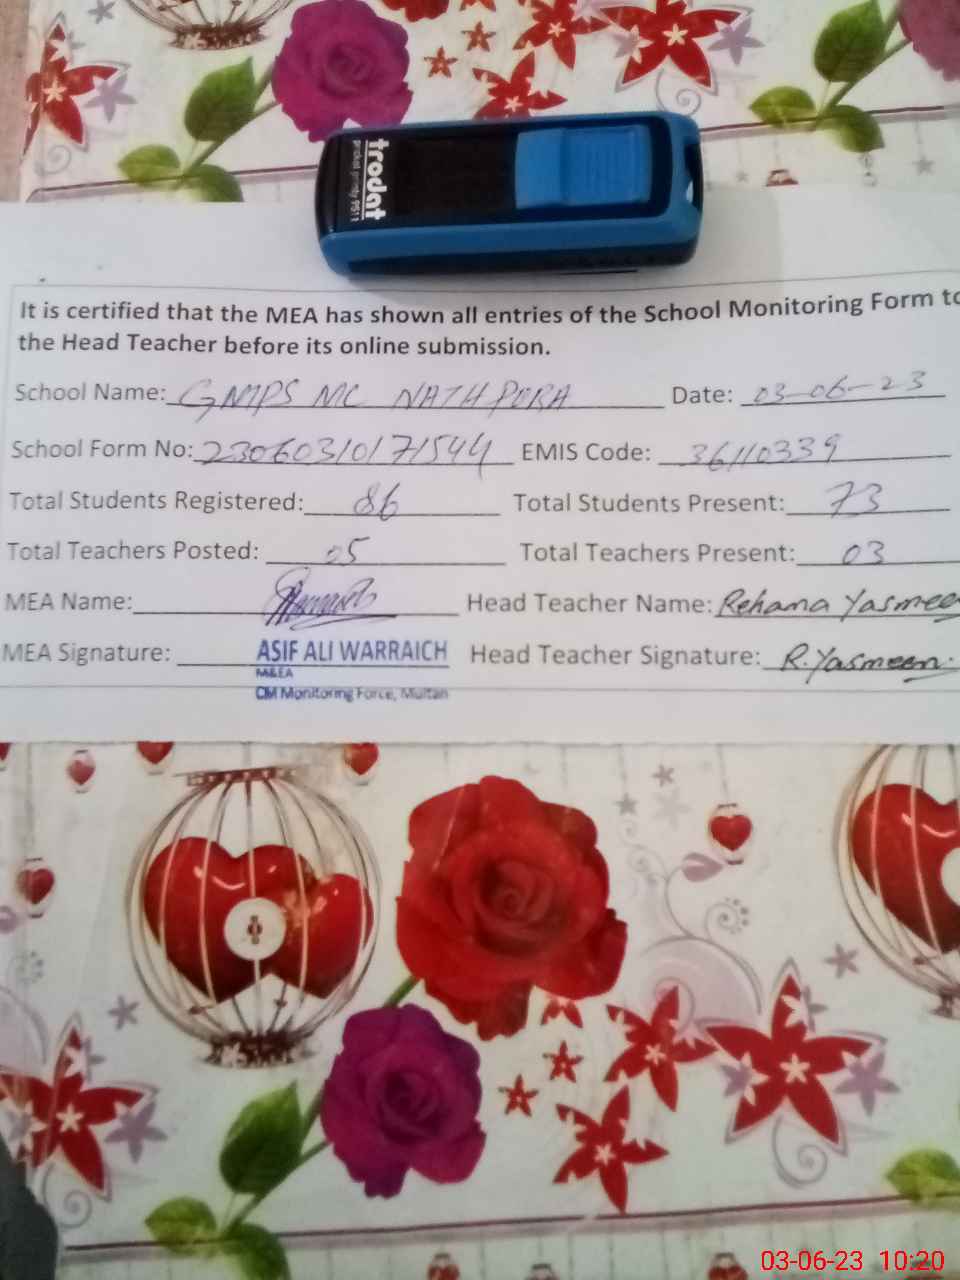 trodat
pocket printy 9511
It is certified that the MEA has shown all entries of the School Monitoring Form to
the Head Teacher before its online submission.
School Name: GMPS MC NATHPURA Date: 03-06-23
School Form No: 23060310171544 EMIS Code: 36110339
Total Students Registered: 86 Total Students Present: 73
Total Teachers Posted: 05 Total Teachers Present: 03
MEA Name: Head Teacher Name: Rehana Yasmee
MEA Signature: ASIF ALI WARRAICH Head Teacher Signature: R.Yasmeen.
M&EA
CM Monitoring Force, Multan
03-06-23 10:20